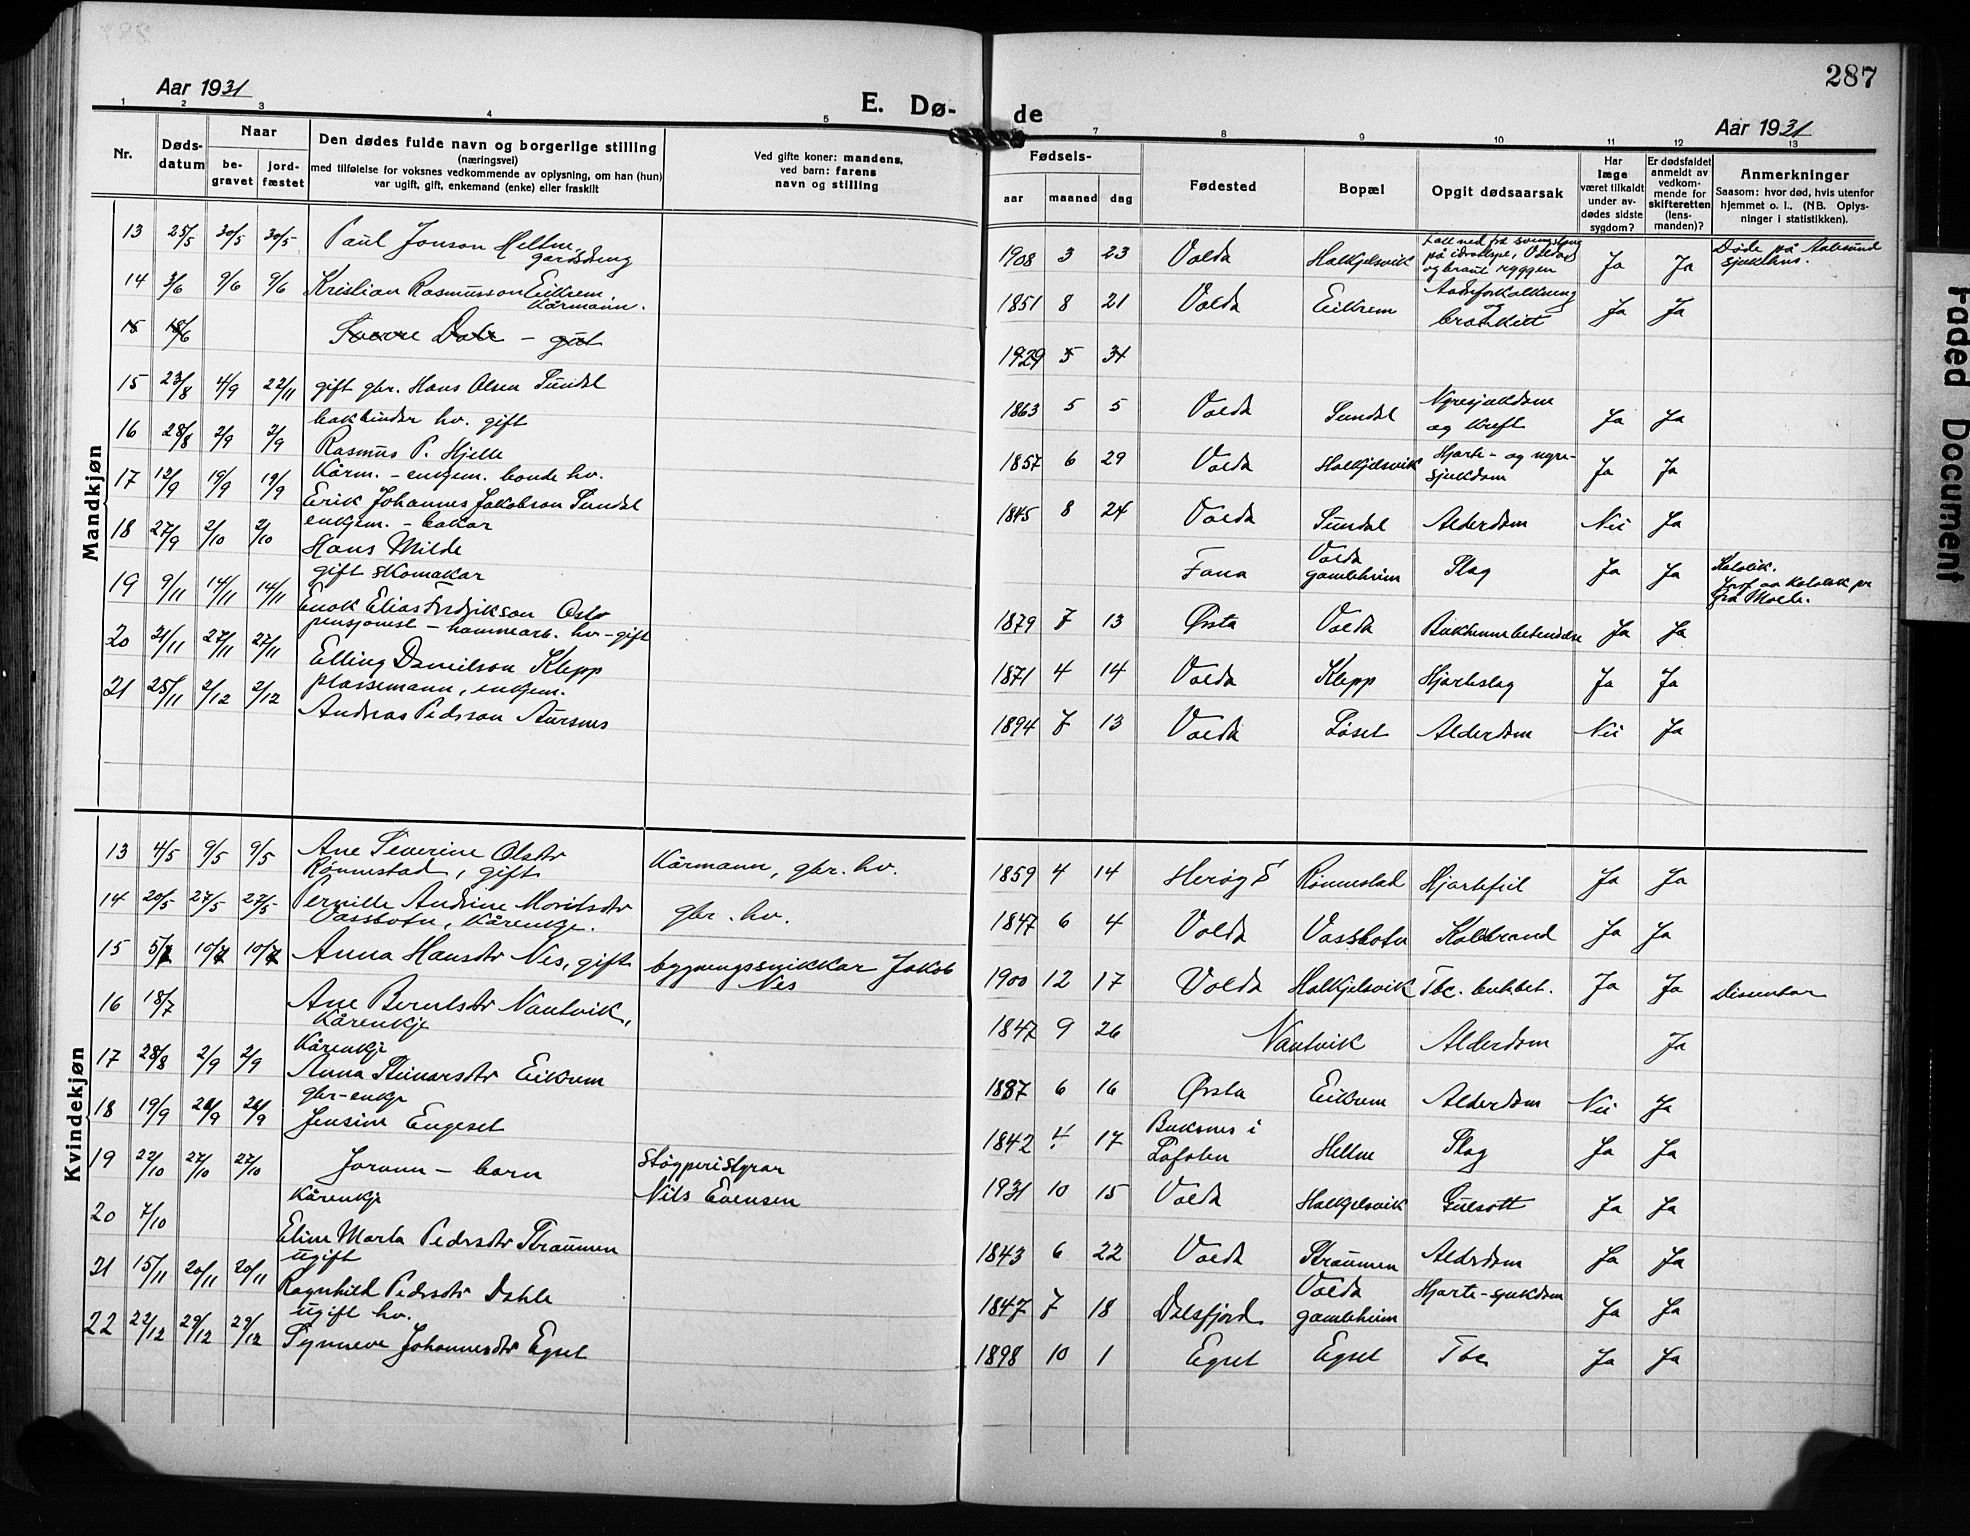 287
Aar 1931
E. Dø-
de
Aar 1931
1 2 3 4 5 7 8 9 10 11 12 13
Nr.
Døds-
datum
Naar
be-
gravet
jord-
fæstet
Den dødes fulde navn og borgerlige stilling
(næringsvei)
med tilføielse for voksnes vedkommende av oplysning, om han (hun)
var ugift, gift, enkemand (enke) eller fraskilt
Ved gifte koner: mandens,
ved barn: farens
navn og stilling
Fødsels-
aar maaned dag
Fødested
Bopæl
Opgit dødsaarsak
Har
læge
været tilkaldt
under av-
dødes sidste
sygdom?
Er dødsfaldet
anmeldt av
vedkom-
mende for
skifteretten
(lens-
manden)?
Anmerkninger
Saasom: hvor død, hvis utenfor
hjemmet o. l., (NB. Oplys-
ninger i statistikken).
Mandkjøn
13 25/5 30/5 30/5 Paul Jonson Heltne
gardsdreng
1908 3 23 Volda Halkjelsvik
og braut ryggen Ja Ja Døde på Aalesund
sjukehus.
14 3/6 9/6 9/6 Kristian Rasmusson Eikrem
Kårmann.
1851 8 21 Volda Eikrem Aadreforkalkning
og
bronkitt Ja Ja
15 18/6 Sverre Dale - gut
1929 5 31
15 23/8 4/9 22/11 gift gbr. Hans Olsen Sundal
1863 5 5 Volda Sundal Nyresjukdom
og kreft Ja Ja
16 28/8 2/9 2/9 bokbinder hv. gift
Rasmus P. Hjelle
1857 6 29 Volda Halkjelsvik Hjarte- og nyre-
sjukdom Ja Ja
17 12/9 19/9 19/9 Kårm. - enkjem. bonde hv.
Erik Johannes Jakobson Sundal
1845 8 24 Volda Sundal Alderdom Nei Ja
18 27/9 2/10 2/10 enkjem. - bakar
Hans Milde
Fana Volda
gamleheim Slag Ja Ja Katolik.
fra Molde.
19 9/11 14/11 14/11 gift skomakar
Enok Elias Fredrikson Osto
1879 7 13 Ørsta Volda Bukhinnebetendelse Ja Ja
20 21/11 27/11 27/11 pensjonist - hammearb. hv - gift
Elling Danielson Klepp
1871 4 14 Volda Klepp Hjarteslag Ja Ja
21 25/11 2/12 2/12 plassemann, enkjem.
Andreas Pedrson Aursnes
1894 7 13 Volda Løset Alderdom Nei Ja
Kvindekjøn
13 4/5 9/5 9/5 Ane Severine Olsdtr
Rønnestad, gift Kårmann, gbr. hv.
1859 4 14 Herøy S Rønnestad Hjartefeil Ja Ja
14 20/5 27/5 27/5 Pernille Andrine Moritsdtr
Vassbotn, Kårenkje. gbr. hv.
1847 6 4 Volda Vassbotn Kolbrand Ja Ja
15 5/7 10/7 10/7 Anna Hansdtr Nes, gift bygningssnikkar Jakob
Nes
1900 12 17 Volda Halkjelsvik Tbc. bukbet. Ja Ja Dissenter
16 18/7 Ane Berntsdtr Nautvik,
Kårenkje
1847 9 26 Nautvik Alderdom Ja
17 28/8 2/9 2/9 Kårenkje
Anna Steinarsdtr Eikrem
1837 6 16 Ørsta Eikrem Alderdom Nei Ja
18 19/9 26/9 26/9 gbr-enkje
Jensine Engeset
1842 4 17 Buksnes i
Lofoten Heltne Slag Ja Ja
19 22/10 27/10 27/10 Jorunn - barn støyperistyrar
Nils Evensen
1931 10 15 Volda Halkjelsvik Gulsott Ja Ja
20 7/10 Kårenkje
Eline Marta Pedrsdtr Straumen
1843 6 22 Volda Straumen Alderdom Ja Ja
21 15/11 20/11 20/11 ugift
Ragnhild Pedrsdtr Dahle
1847 7 18 Dalsfjord Volda
gamleheim Hjarte-sjukdom Ja Ja
22 22/12 29/12 29/12 ugift hv.
Synneve Johannesdtr Egset
1898 10 1 Egset Egset Tbc Ja Ja
Faded Document